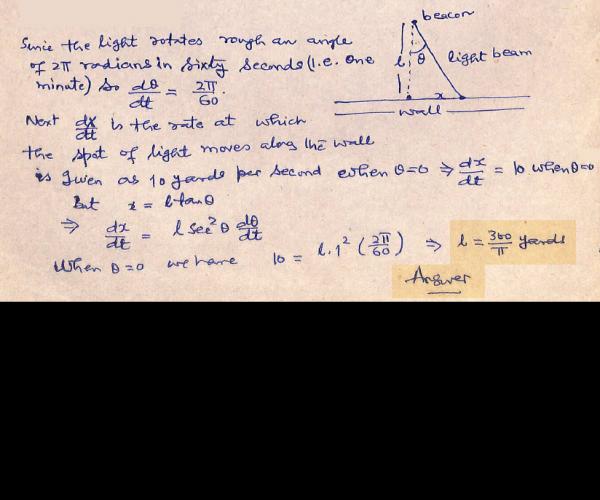 beacon
Sinie the light rotates rough an angle
of 2π radians in sixty seconds (i.e. one
minate) so dθ/dt = 2π/60.
l θ light beam
x
wall
Next dx/dt is the rate at which
the spot of light moves along the wall
is given as 10 yards per second when θ=0 ⇒ dx/dt = 10 when θ=0
But x = l tanθ
⇒ dx/dt = l sec²θ dθ/dt
When θ=0 we have 10 = l.1² (2π/60) ⇒ l = 300/π yards
Answer